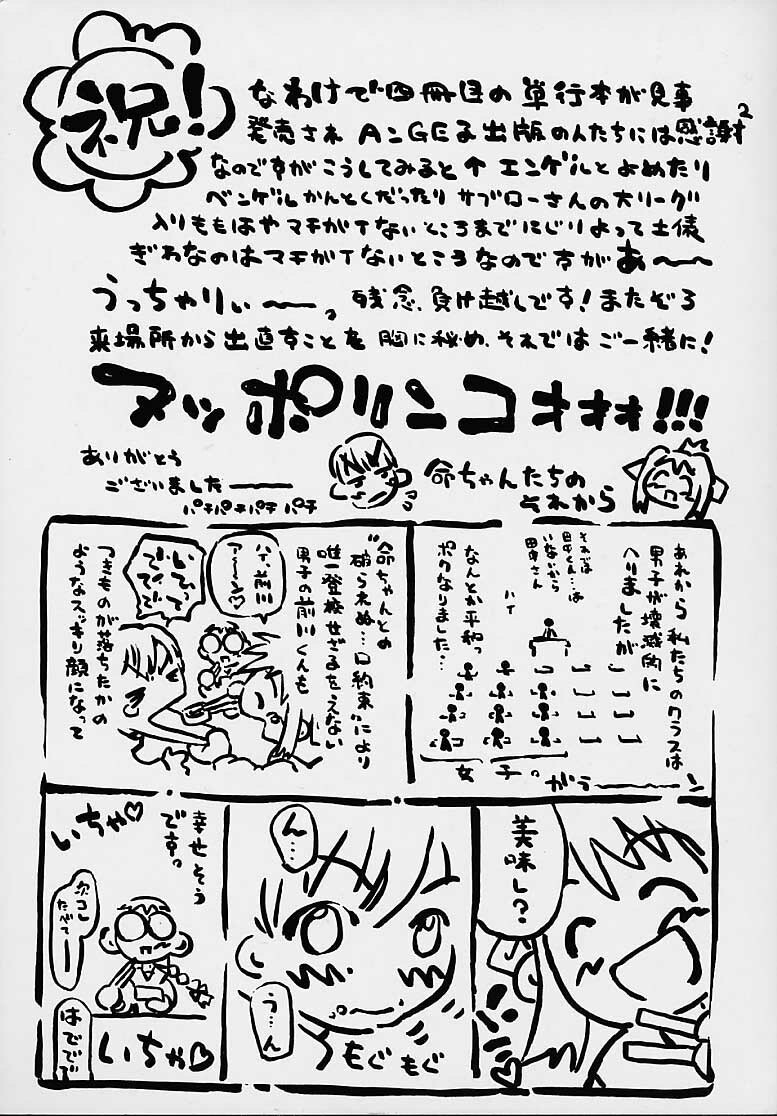 祝!
なわけで四冊目の単行本が見事
発売され AンGEる出版の人たちには感謝2
なのですがこうしてみると↑エンゲルとよめたり
ベンゲルかんとくだったり サブローさんの大リーグ
入りももはやマチガイないところまでにじりよって土俵
ぎわなのはマチガイないところなのですがあ〜〜
うっちゃりぃーっ。残念、負け越しです!またぞろ
来場所から出直すことを胸に秘め、それではご一緒に!
マッポリンコオオオ!!!
ありがとう
ございました――
パチパチパチパチ
命ちゃんたちの
それから
あれから私たちのクラスは
男子が壊滅的に
へりましたが
それでは
田中くん…は
いないから
田中さん
ハイ
なんとか平和っ
ポクなりました…
女子っ
がらーーーン
“命ちゃんとの
破られぬ…口約束”により
唯一登校せざるをえない
男子の前川くんも
ハイ、前川
アーン♡
つきものが落ちたかの
ようなスッキリ顔になって
美味し?
ん…
う…ん
もぐもぐ
幸せそう
ですっ
いちゃ♡
次コレ
たべてー
はででで
いちゃ♡